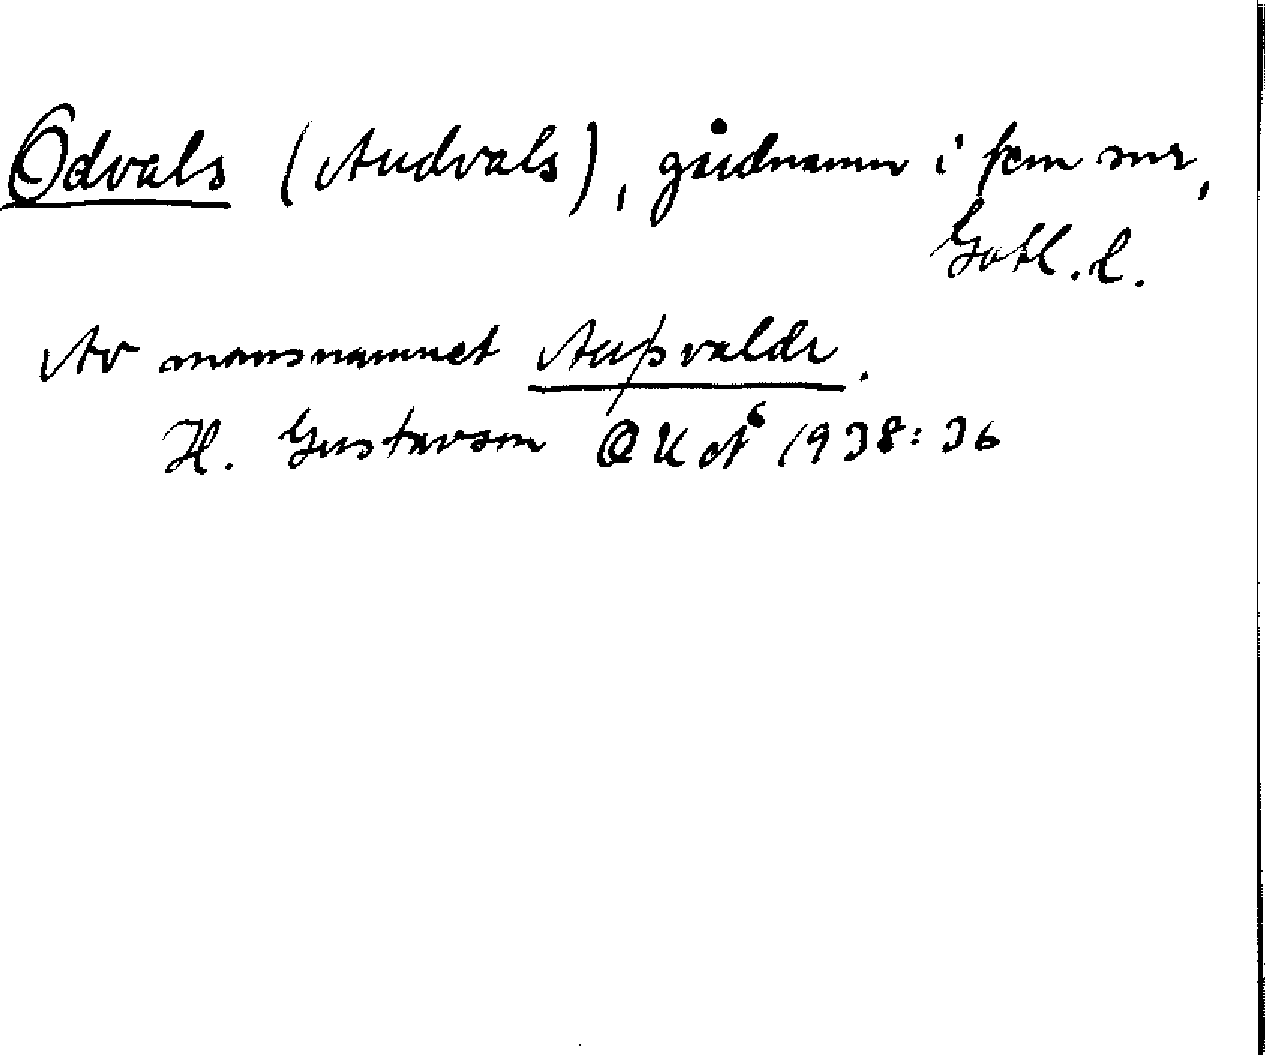 Odvals (Audvals), gårdnamn i fem snr,
Gotl. l.
Av mansnamnet Auþvaldr.
H. Gustavson 1938:36